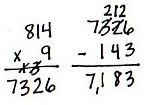 814
x 9
7326
212
7326
- 143
7,183